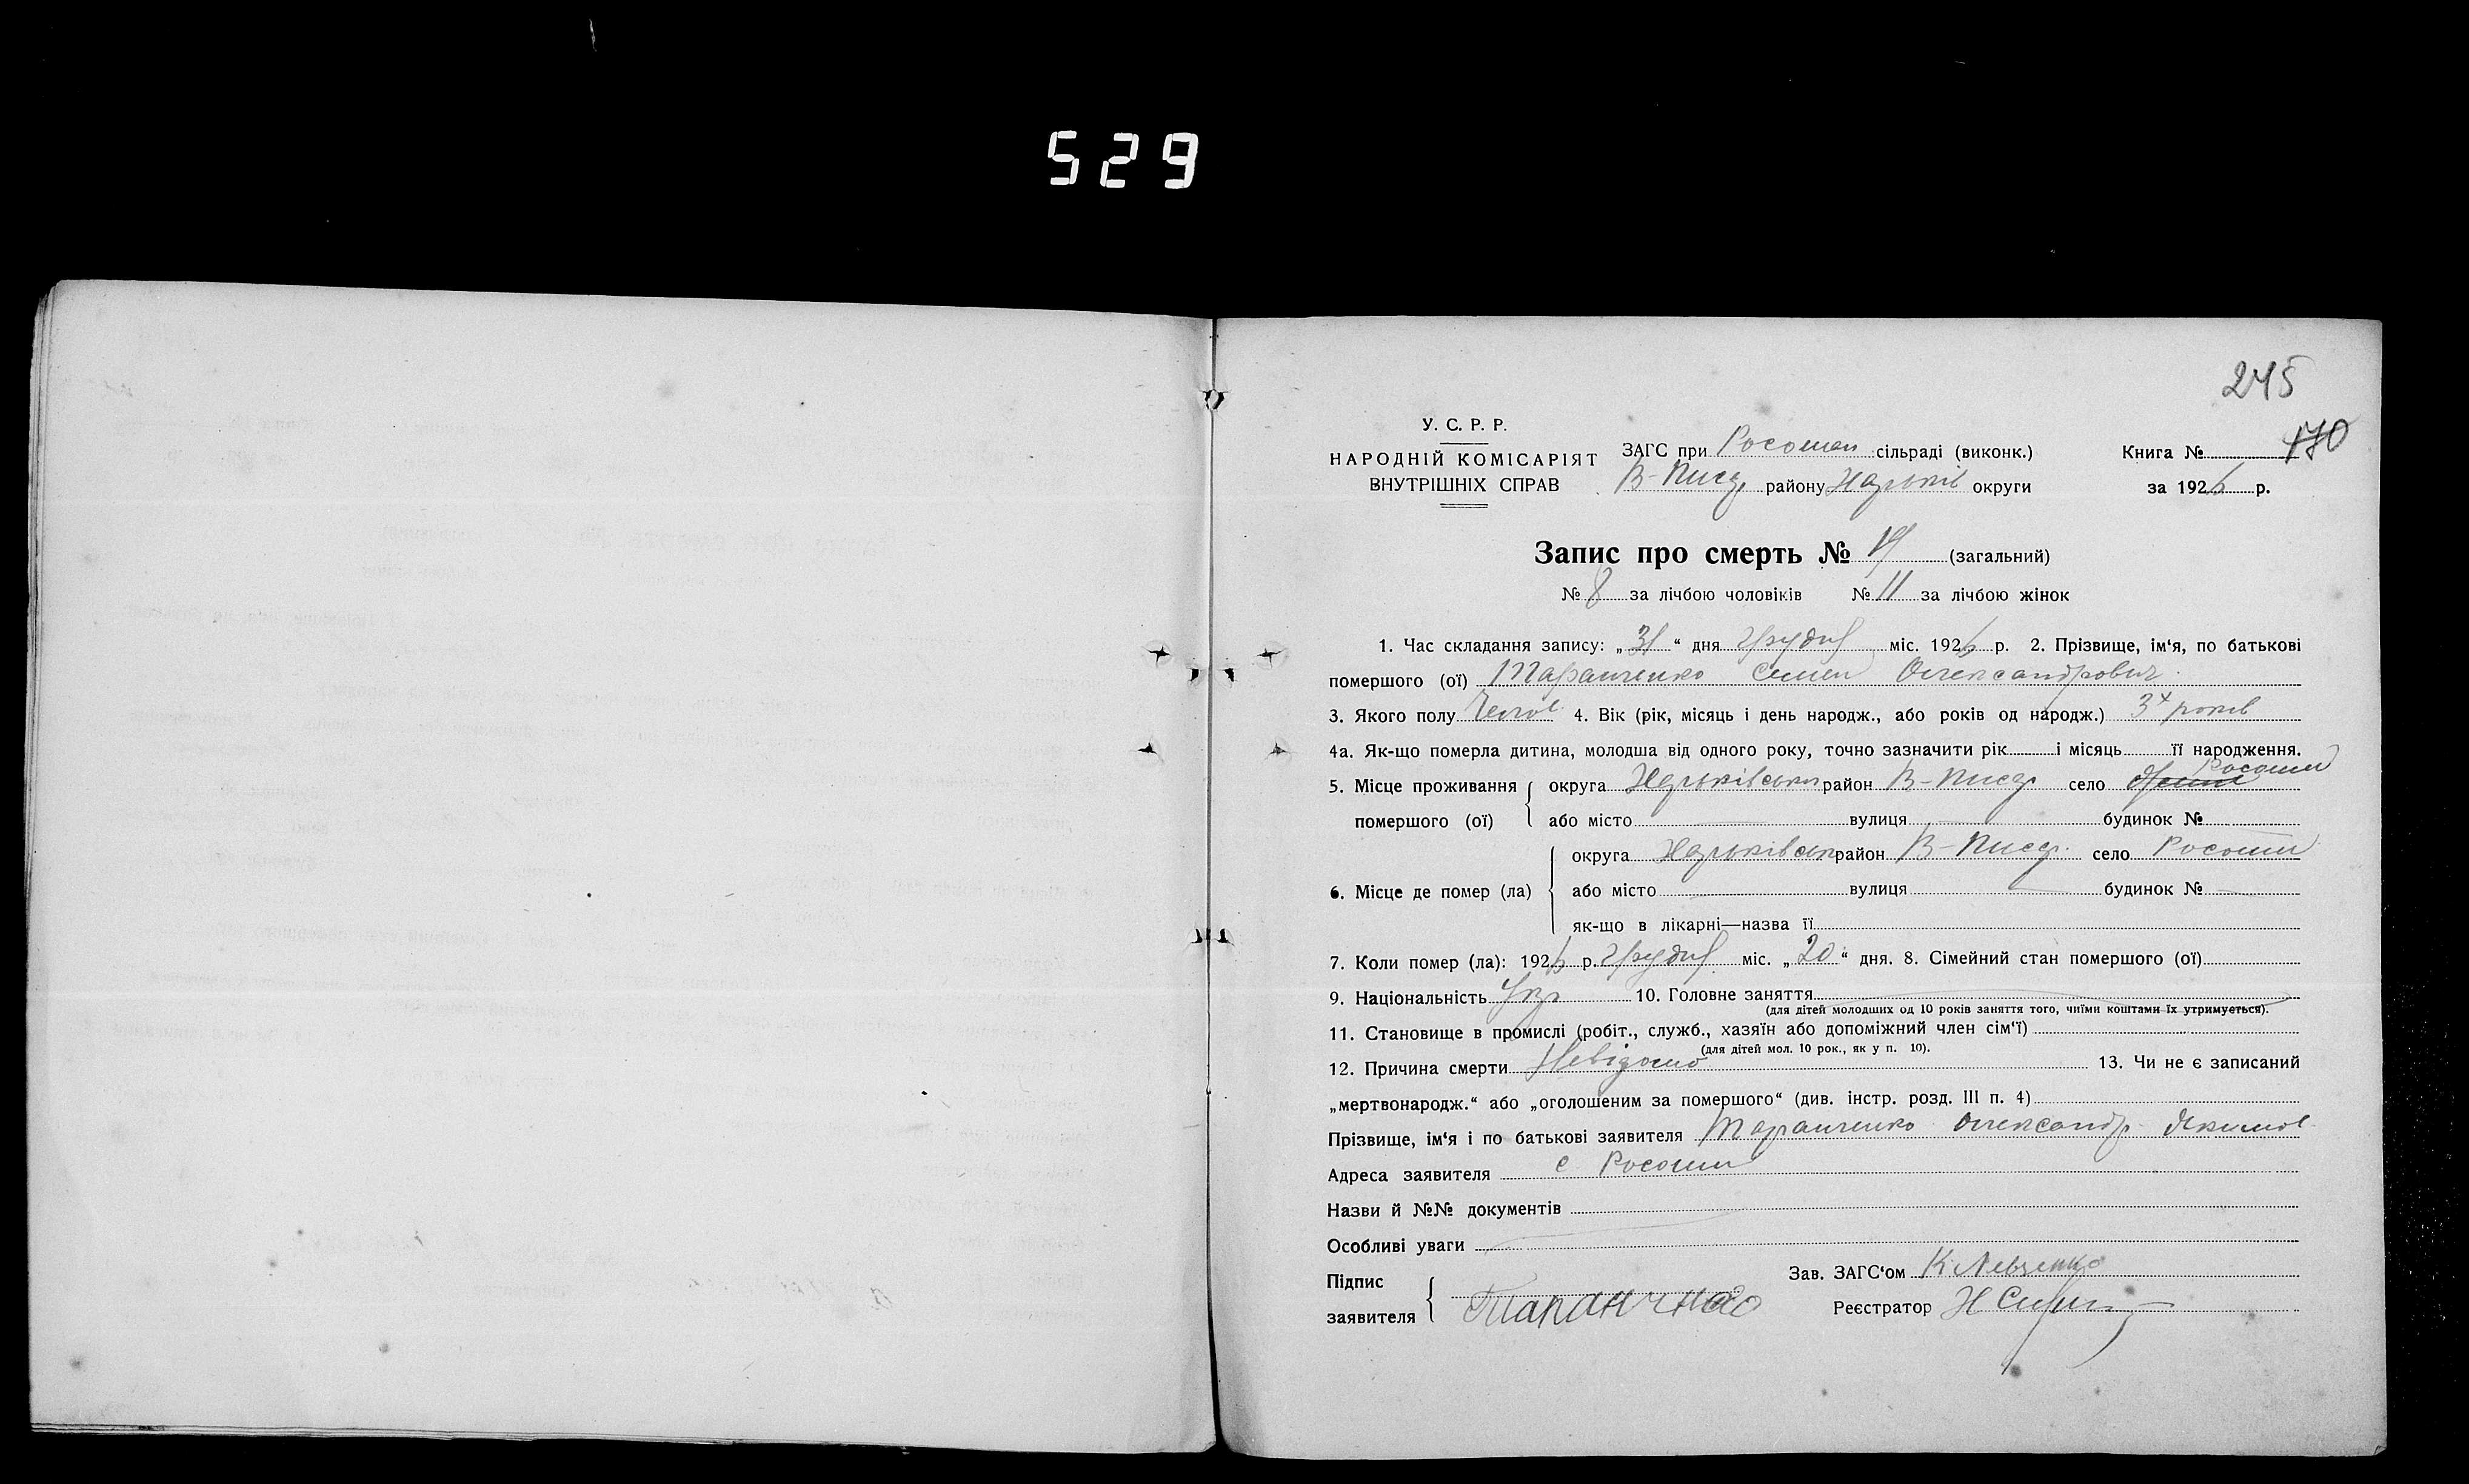 529
245
170
У. С. Р. Р.
НАРОДНІЙ КОМІСАРІЯТ
ВНУТРІШНІХ СПРАВ
ЗАГС при Росошан сільраді (виконк.)
В-Писар району Харьків округи
Книга №
за 1926 р.
Запис про смерть № 19 (загальний)
№ 8 за лічбою чоловіків № 11 за лічбою жінок
1. Час складання запису: „31“ дня Грудня міс. 1926 р. 2. Прізвище, ім‘я, по батькові
помершого (ої) Таранченко Семен Олександрович
3. Якого полу Чолов 4. Вік (рік, місяць і день народж., або років од народж.) 3х років
4а. Як-що померла дитина, молодша від одного року, точно зазначити рік і місяць її народження.
5. Місце проживання округа Харьківська район В-Писар село Росоши
помершого (ої) або місто — вулиця — будинок № —
6. Місце де помер (ла) округа Харьківська район В-Писар село Росоши
або місто — вулиця — будинок № —
як-що в лікарні—назва її
7. Коли помер (ла): 1926 р. Грудня міс. „20“ дня. 8. Сімейний стан помершого (ої)
9. Національність Укр 10. Головне заняття
(для дітей молодших од 10 років заняття того, чиїми коштами їх утримується).
11. Становище в промислі (робіт., служб., хазяїн або допоміжний член сім‘ї)
(для дітей мол. 10 рок., як у п. 10).
12. Причина смерти Невідомо 13. Чи не є записаний
„мертвонародж.“ або „оголошеним за помершого“ (див. інстр. розд. III п. 4)
Прізвище, ім‘я і по батькові заявителя Таранченко Олександр Якимов
Адреса заявителя с Росоши
Назви й №№ документів
Особливі уваги
Підпис
заявителя
Зав. ЗАГС‘ом К Левченко
Реєстратор Н